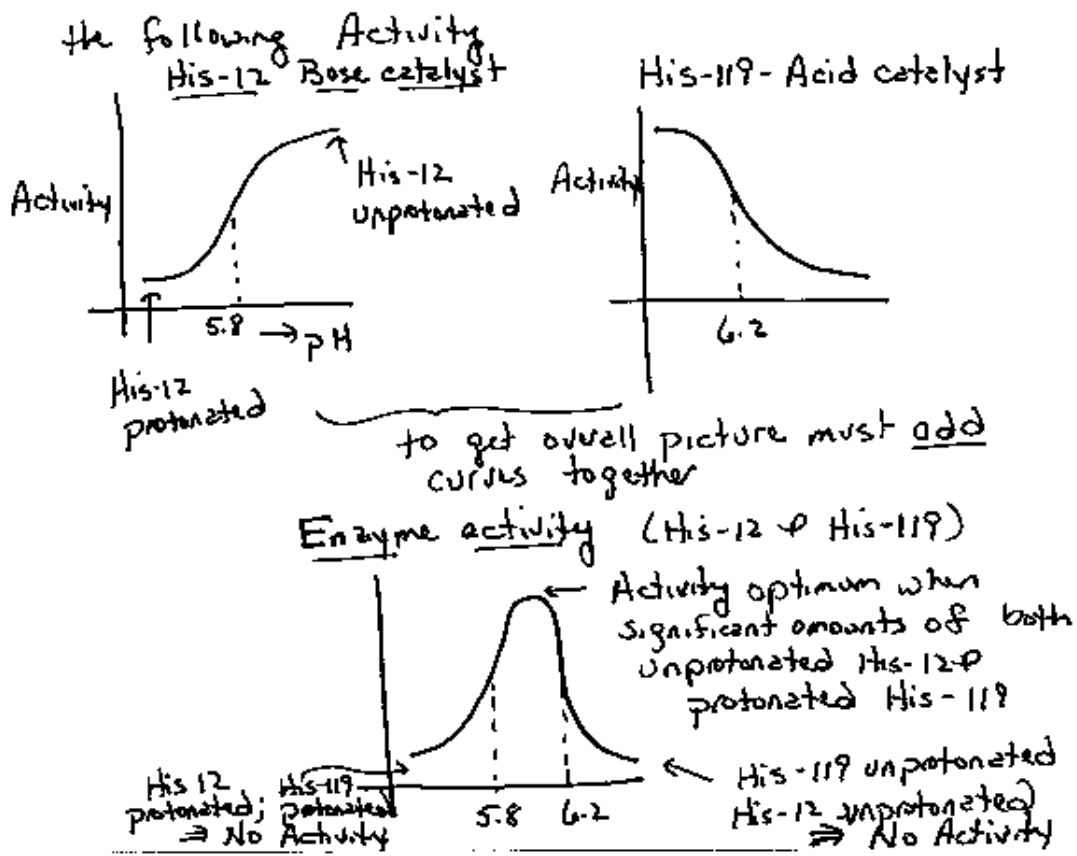 the following Activity
His-12 Base catalyst
His-119-Acid catalyst
Activity
His-12
unprotonated
Activity
5.8 → pH
6.2
His-12
protonated
to get overall picture must add
curves together
Enzyme activity (His-12 & His-119)
Activity optimum when
significant amounts of both
unprotonated His-12 &
protonated His-119
His 12 protonated; His-119 protonated
⇒ No Activity
5.8 6.2
His-119 unprotonated
His-12 unprotonated
⇒ No Activity